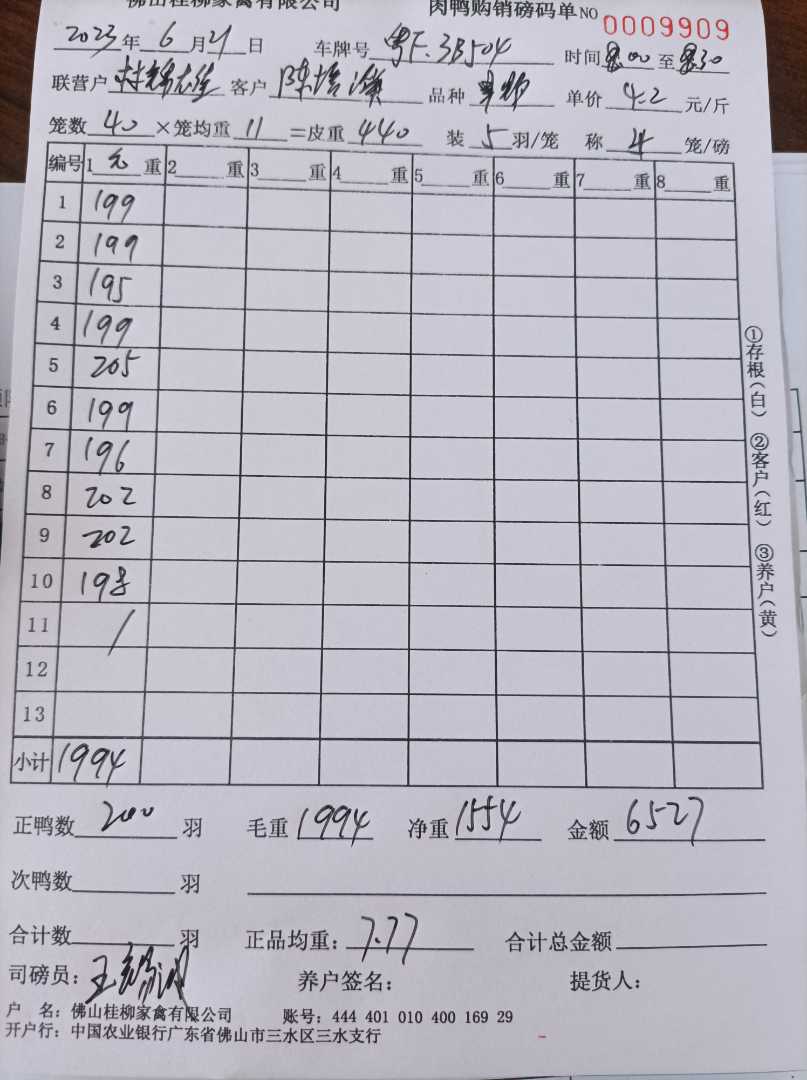 佛山桂柳家禽有限公司 肉鸭购销磅码单 NO 0009909
2023年6月21日 车牌号 粤F.3B504 时间 8:00 至 8:30
联营户 客户 陈 品种 单价 4.2 元/斤
笼数 40 ×笼均重 11 =皮重 440 装 5 羽/笼 称 4 笼/磅
编号 1 毛 重 2 重 3 重 4 重 5 重 6 重 7 重 8 重
1 199
2 199
3 195
4 199
5 205
6 199
7 196
8 202
9 202
10 198
11 /
12
13
小计 1994
正鸭数 200 羽 毛重 1994 净重 1554 金额 6527
次鸭数 羽
合计数 羽 正品均重: 7.77 合计总金额
司磅员: 王 养户签名: 提货人:
户 名: 佛山桂柳家禽有限公司 账号: 444 401 010 400 169 29
开户行: 中国农业银行广东省佛山市三水区三水支行
①存根(白) ②客户(红) ③养户(黄)